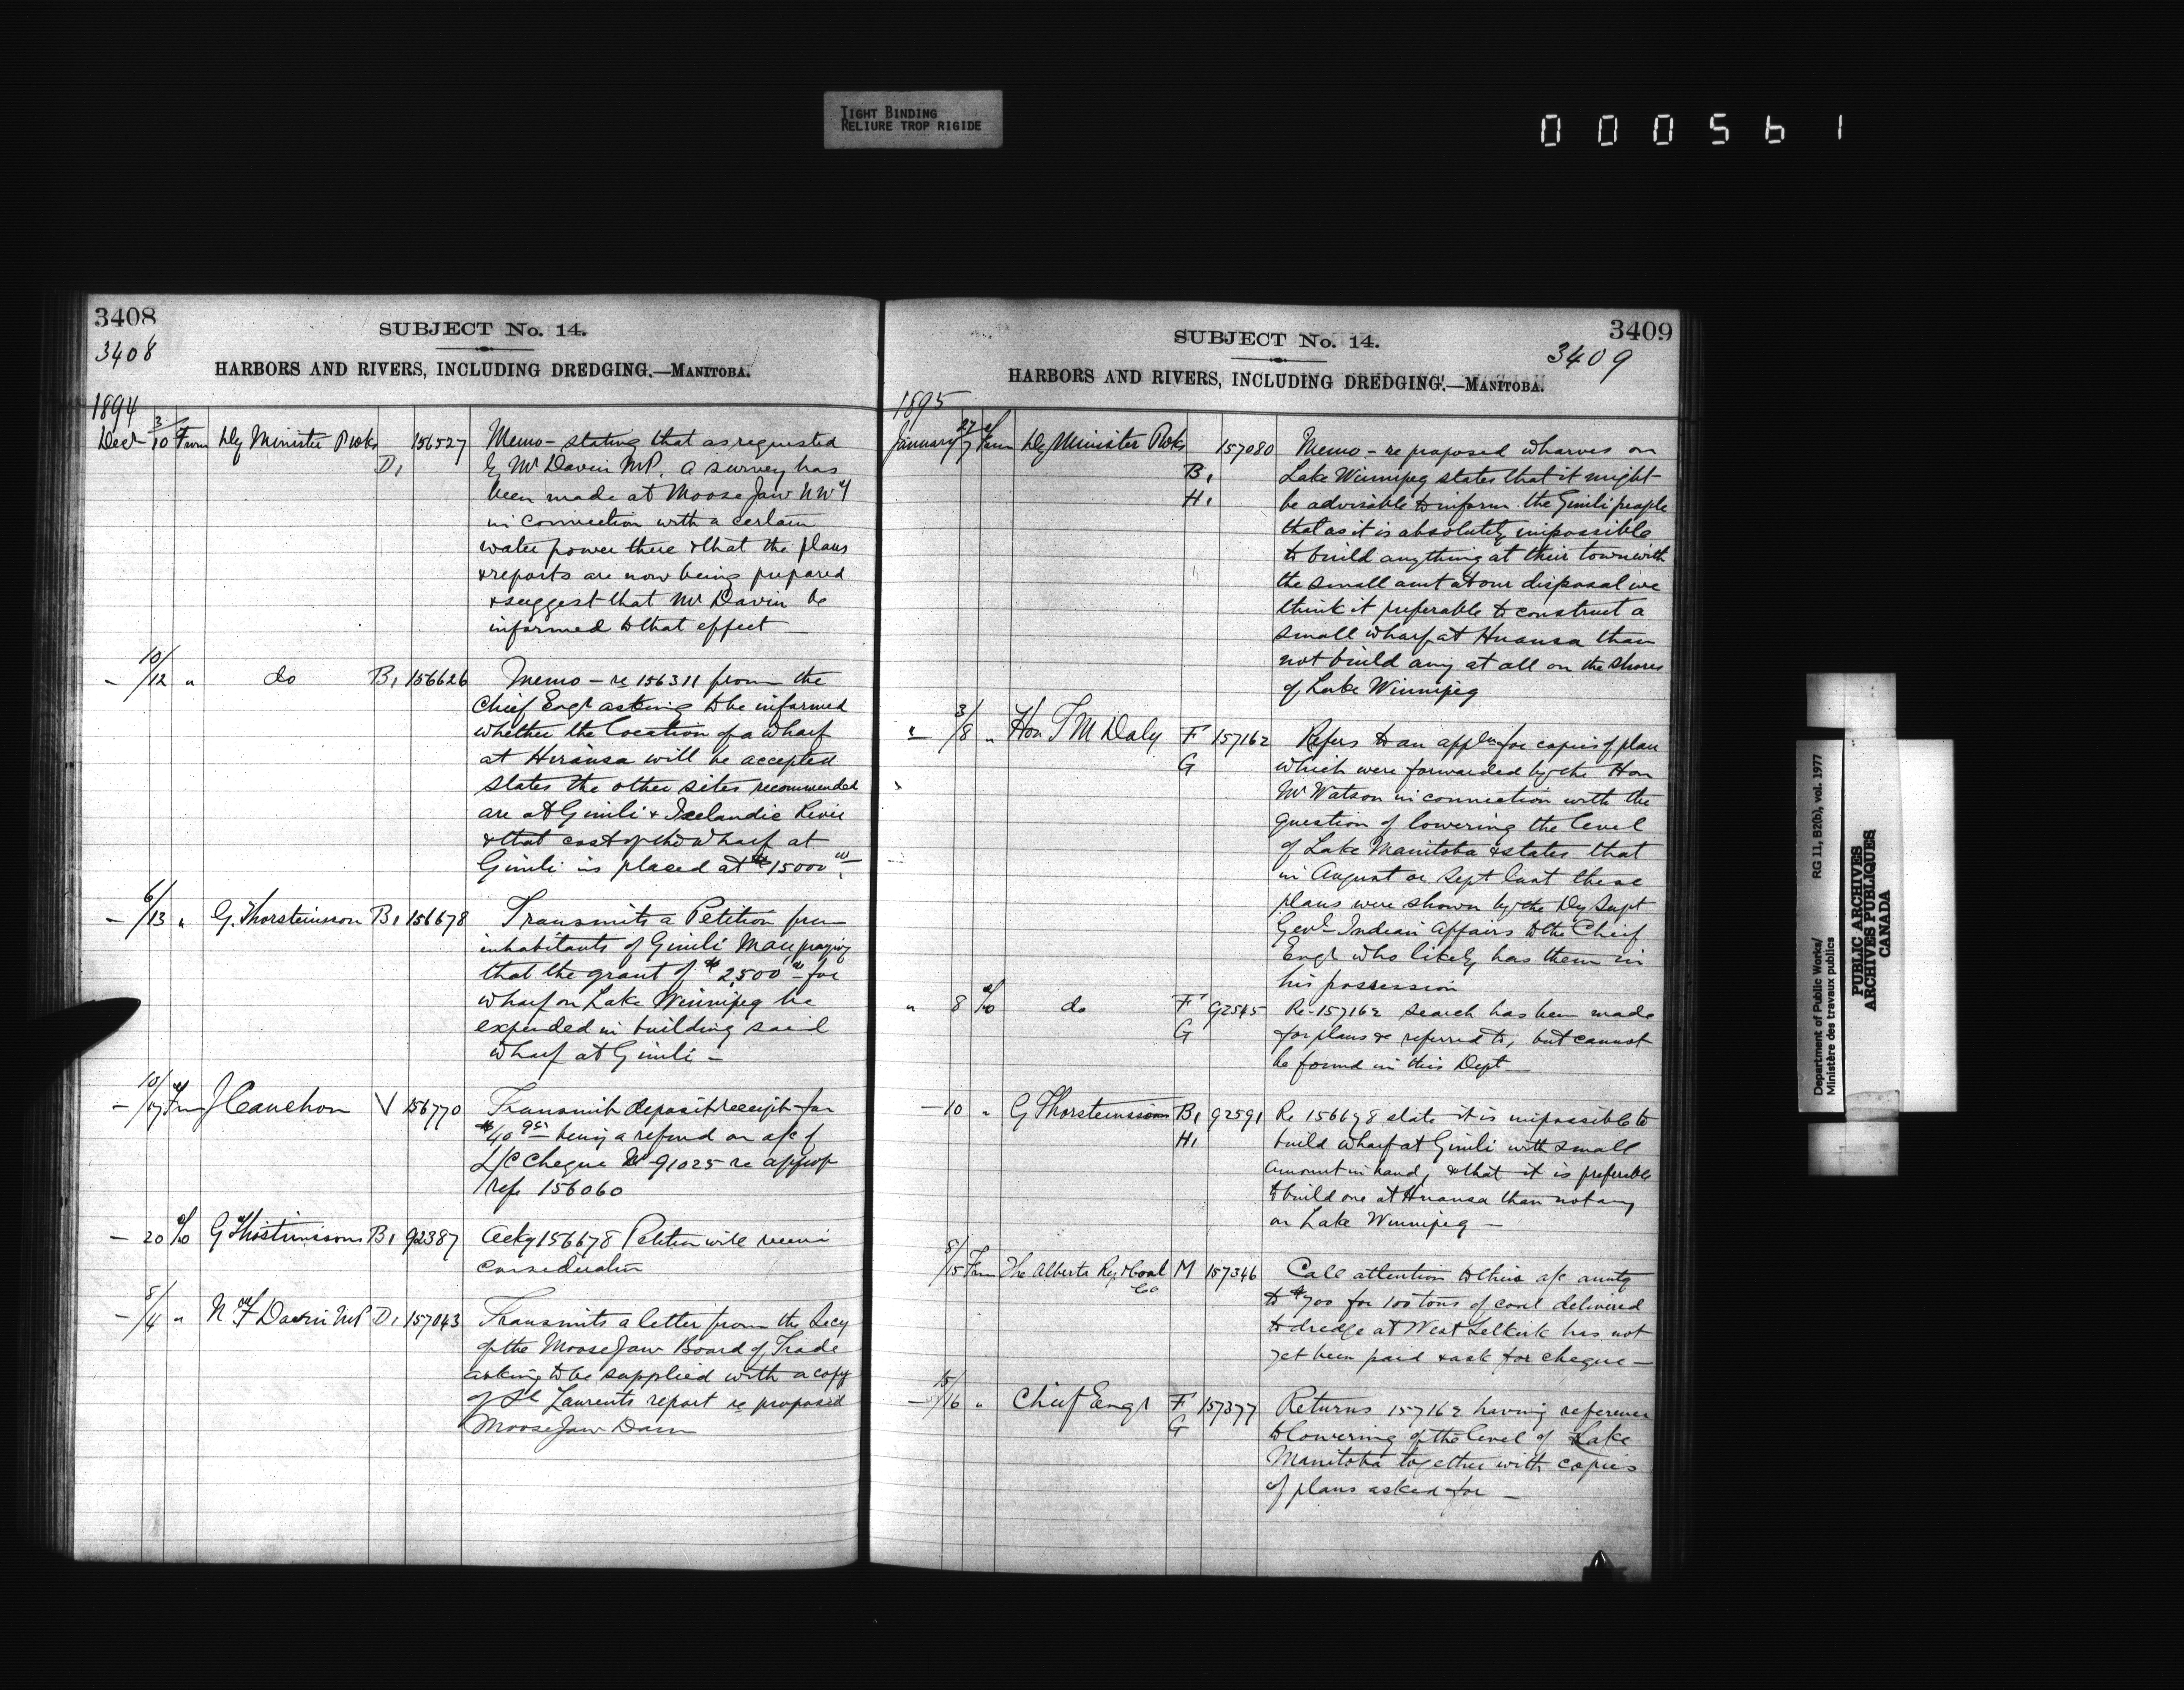 TIGHT BINDING
RELIURE TROP RIGIDE
000561
3408
SUBJECT No. 14.
3408
HARBORS AND RIVERS, INCLUDING DREDGING.—MANITOBA.
1894
Decr 3/10 From Dy Minister P Wks D1 156527 Memo – stating that as requested
by Mr Davin MP. a survey has
been made at Moose Jaw NWT
in connection with a certain
water power there & that the plans
& reports are now being prepared
& suggest that Mr Davin be
informed to that effect –
– 10/12 " do B1 156626 Memo – re 156311 from the
Chief Engr asking to be informed
whether the location of a wharf
at Hnausa will be accepted
states the other sites recommended
are at Gimli & Icelandic River
& that cost of the wharf at
Gimli is placed at $15000.00
– 6/13 " G. Thorsteinsson B1 156678 Transmits a Petition from
inhabitants of Gimli Man praying
that the grant of $2,500.00 for
wharf on Lake Winnipeg be
expended in building said
wharf at Gimli –
– 10/17 From J Cauchon V 156770 Transmits deposit receipt for
$40 95 being a refund on a/c of
L/C Cheque No 91025 re approp
/refe 156060
– 20 To G Thorsteinssons B1 92387 Ackg 156678 Petition will receive
consideration
– 8/4 " N F Davin MP D1 157043 Transmits a letter from the Secy
of the Moose Jaw Board of Trade
asking to be supplied with a copy
of St Laurents report re proposed
Moose Jaw Dam
SUBJECT No. 14.
3409
3409
HARBORS AND RIVERS, INCLUDING DREDGING.—MANITOBA.
1895
January 27/7 From Dy Minister P Wks 157080 Memo – re proposed wharves on
B1 Lake Winnipeg states that it might
H1 be advisable to inform the Gimli people
that as it is absolutely impossible
to build anything at their town with
the small amt at our disposal we
think it preferable to construct a
small wharf at Hnausa than
not build any at all on the shores
of Lake Winnipeg
" 3/8 " Hon T M Daly F 157162 Refers to an appln for copies of plan
G which were forwarded by the Hon
Mr Watson in connection with the
question of lowering the level
of Lake Manitoba & states that
in August or Sept last these
plans were shown by the Dy Supt
Genl Indian Affairs to the Chief
Engr who likely has them in
his possession
" 8 To do F 92545 Re-157162 search has been made
G for plans & referred to, but cannot
be found in this Dept –
– 10 " G Thorsteinssons B1 92591 Re 156678 state it is impossible to
H1 build wharf at Gimli with small
amount in hand, & that it is preferable
to build one at Hnausa than not any
on Lake Winnipeg –
8/15 From The Alberta Ry & Coal Co M 157346 Call attention to their a/c amtg
to $700 for 100 tons of coal delivered
to dredge at West Selkirk has not
yet been paid & ask for cheque –
– 15/16 " Chief Engr F 157377 Returns 157162 having reference
G to lowering of the level of Lake
Manitoba together with copies
of plans asked for –
Department of Public Works/ RG 11, B2(b), vol. 1977
Ministère des travaux publics
PUBLIC ARCHIVES
ARCHIVES PUBLIQUES
CANADA